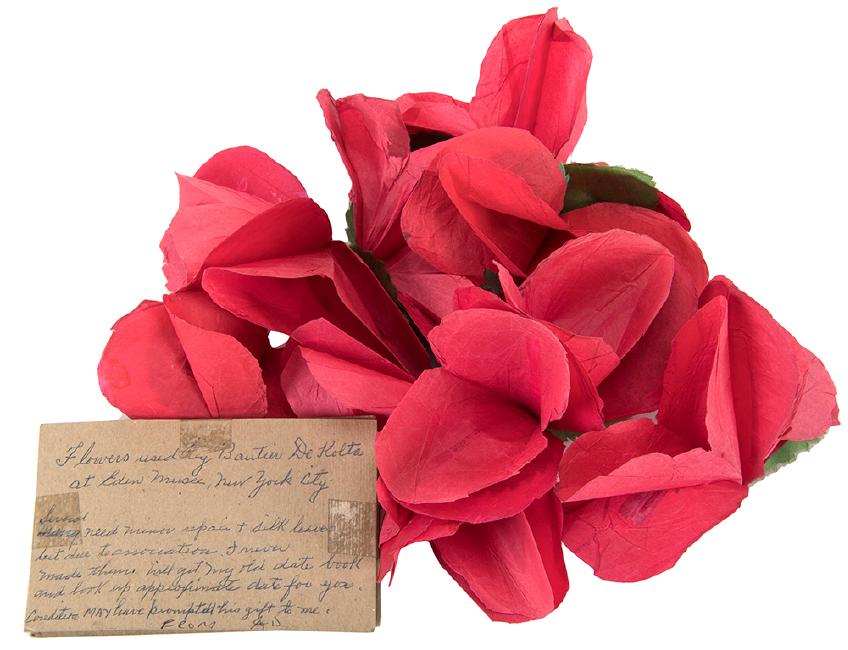 Flowers used by Bautier De Kolta
at Eden Musee, New York City
Several
need minor repair & silk leaves
but due to association I never
made them. Will get my old date book
and look up approximate date for you.
MAY have prompted his gift to me.